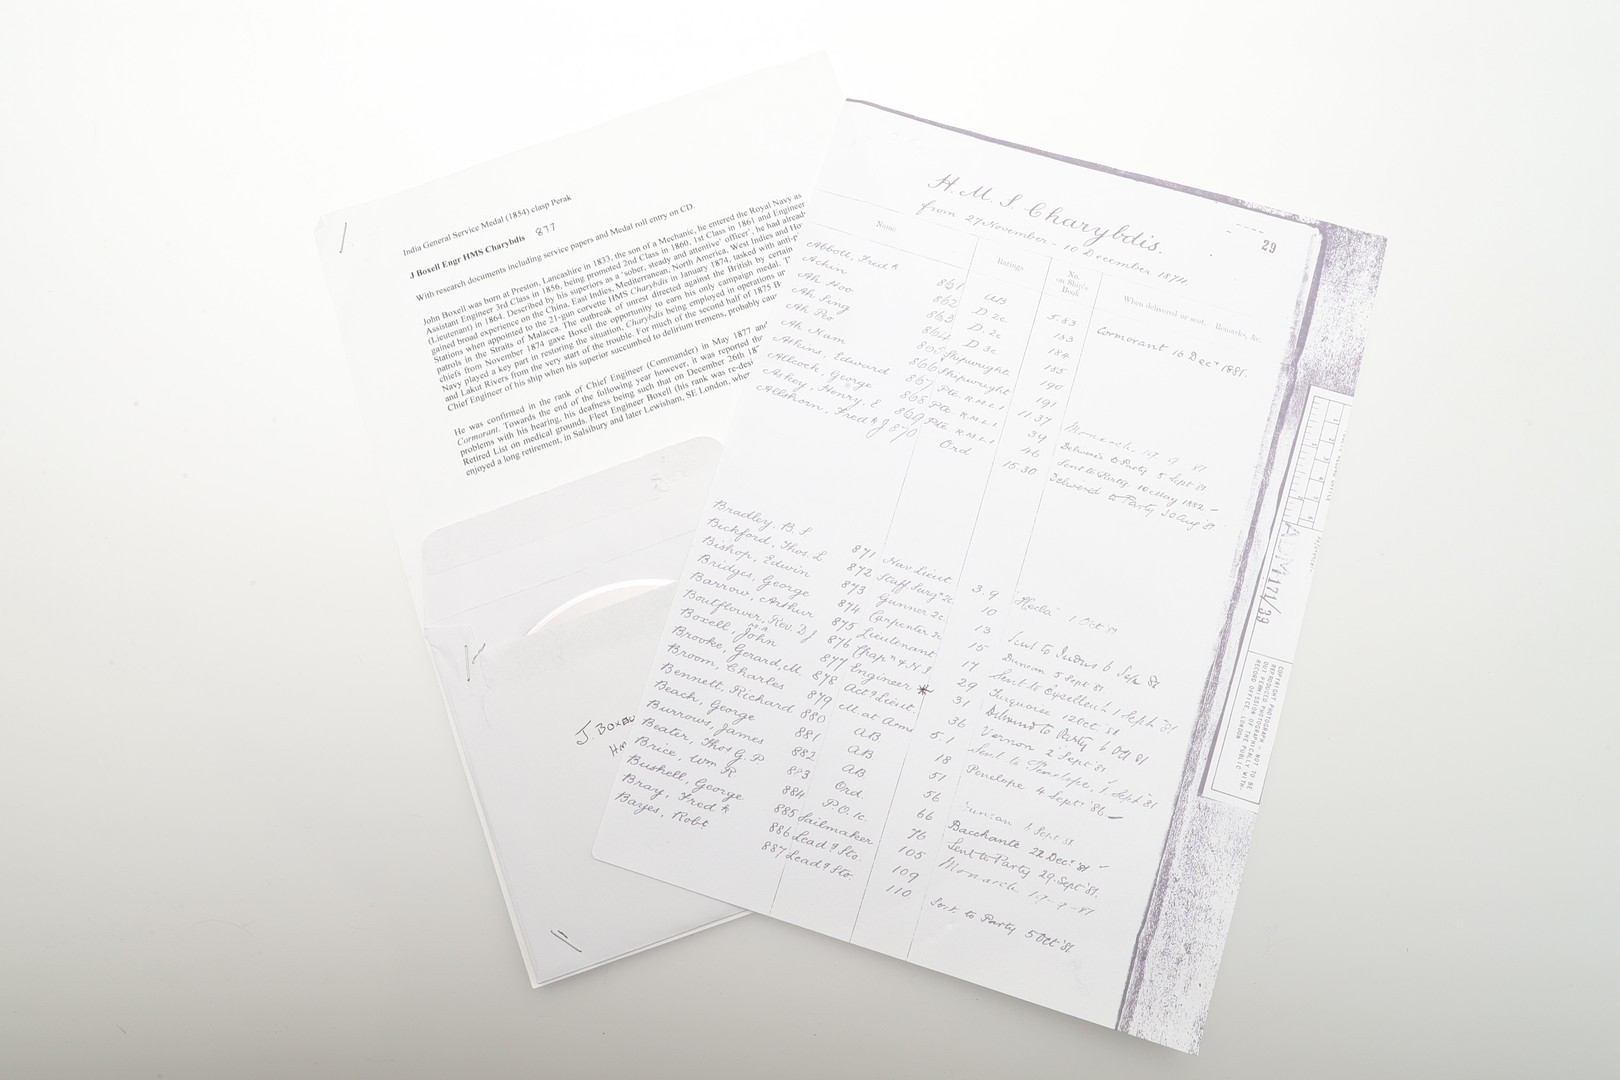 India General Service Medal (1854) clasp Perak
J Boxell Engr HMS Charybdis 877
With research documents including service papers and Medal roll entry on CD.
John Boxell was born at Preston, Lancashire in 1833, the son of a Mechanic, he entered the Royal Navy as
Assistant Engineer 3rd Class in 1856, being promoted 2nd Class in 1860, 1st Class in 1861 and Engineer
(Lieutenant) in 1864. Described by his superiors as a 'sober, steady and attentive' officer', he had already
gained broad experience on the China, East Indies, Mediterranean, North America, West Indies and Ho
Stations when appointed to the 21-gun corvette HMS Charybdis in January 1874, tasked with anti-p
patrols in the Straits of Malacca. The outbreak of unrest directed against the British by certain
chiefs from November 1874 gave Boxell the opportunity to earn his only campaign medal. T
Navy played a key part in restoring the situation, Charybdis being employed in operations u
and Lakut Rivers from the very start of the trouble. For much of the second half of 1875 B
Chief Engineer of his ship when his superior succumbed to delirium tremens, probably cau
He was confirmed in the rank of Chief Engineer (Commander) in May 1877 and
Cormorant. Towards the end of the following year however, it was reported tha
problems with his hearing, his deafness being such that on December 26th 18
Retired List on medical grounds. Fleet Engineer Boxell (his rank was re-desi
enjoyed a long retirement, in Salsibury and later Lewisham, SE London, wher
J BOXELL
HM
H.M.S. Charybdis. 29
from 27 November - 10 December 1874
Name Ratings No. on Ship's Book When delivered or sent. Remarks, &c.
Abbott, Fredk 861 AB 5.83 Cormorant 16 Decr 1881.
Achin 862 D. 2c 183
Ah Hoo 863 D. 2c 184
Ah Sing 864 D 3c 185
Ah Poo 865 Shipwright 190
Ah Nam 866 Shipwright 191
Atkins, Edward 867 Pte R.M.L.I 11.37 Monarch 1.7.9.81
Allcock, George 868 Pte R.M.L.I 39 Delivered to Party 5 Sept 81
Askey, Henry, E 869 Pte R.M.L.I 46 Sent to Party 10 May 1882.
Allshorn, Fredk J 870 Ord 15.30 Delivered to Party 30 Aug 81
Bradley, B. S 871 Nav Lieut 3.9 Hecla 1 Oct 81
Bickford, Thos. L 872 Staff Surgn 2c 10
Bishop, Edwin 873 Gunner 2c 13 Sent to Indus 6 Sep 81
Bridges, George 874 Carpenter 2c 15 Duncan 5 Sept 81
Barrow, Arthur 875 Lieutenant 17 Sent to Excellent 1 Sepr 81
Boutflower, Rev. D. J M.A 876 Chapn & N.I 29 Turquoise 12 Oct. 81
Boxell, John 877 Engineer * 31 Delivered to Party 6 Oct 81
Brooke, Gerard, M. 878 Actg Lieut 36 Vernon 2 Sept 81
Broom, Charles 879 M. at Arms 51 Sent to Penelope, 1 Sept 81
Bennett, Richard 880 AB 18 Penelope 4 Sept 86
Beach, George 881 AB 51
Burrows, James 882 AB 56 Duncan 6 Sept 81
Beater, Thos G. P 883 Ord. 66 Bacchante 22 Decr 81
Brice, Wm R. 884 P.O. 1c. 76 Sent to Party 29 Sept 81.
Bushell, George 885 Sailmaker 105 Monarch 1-7-9-81
Bray, Fredk 886 Leadg Sto. 109
Bayes, Robt 887 Leadg Sto. 110 Sent. to Party 5 Oct 81
ADM 171/39
COPYRIGHT PHOTOGRAPH - NOT TO BE
REPRODUCED PHOTOGRAPHICALLY WITH-
OUT PERMISSION OF THE PUBLIC
RECORD OFFICE, LONDON